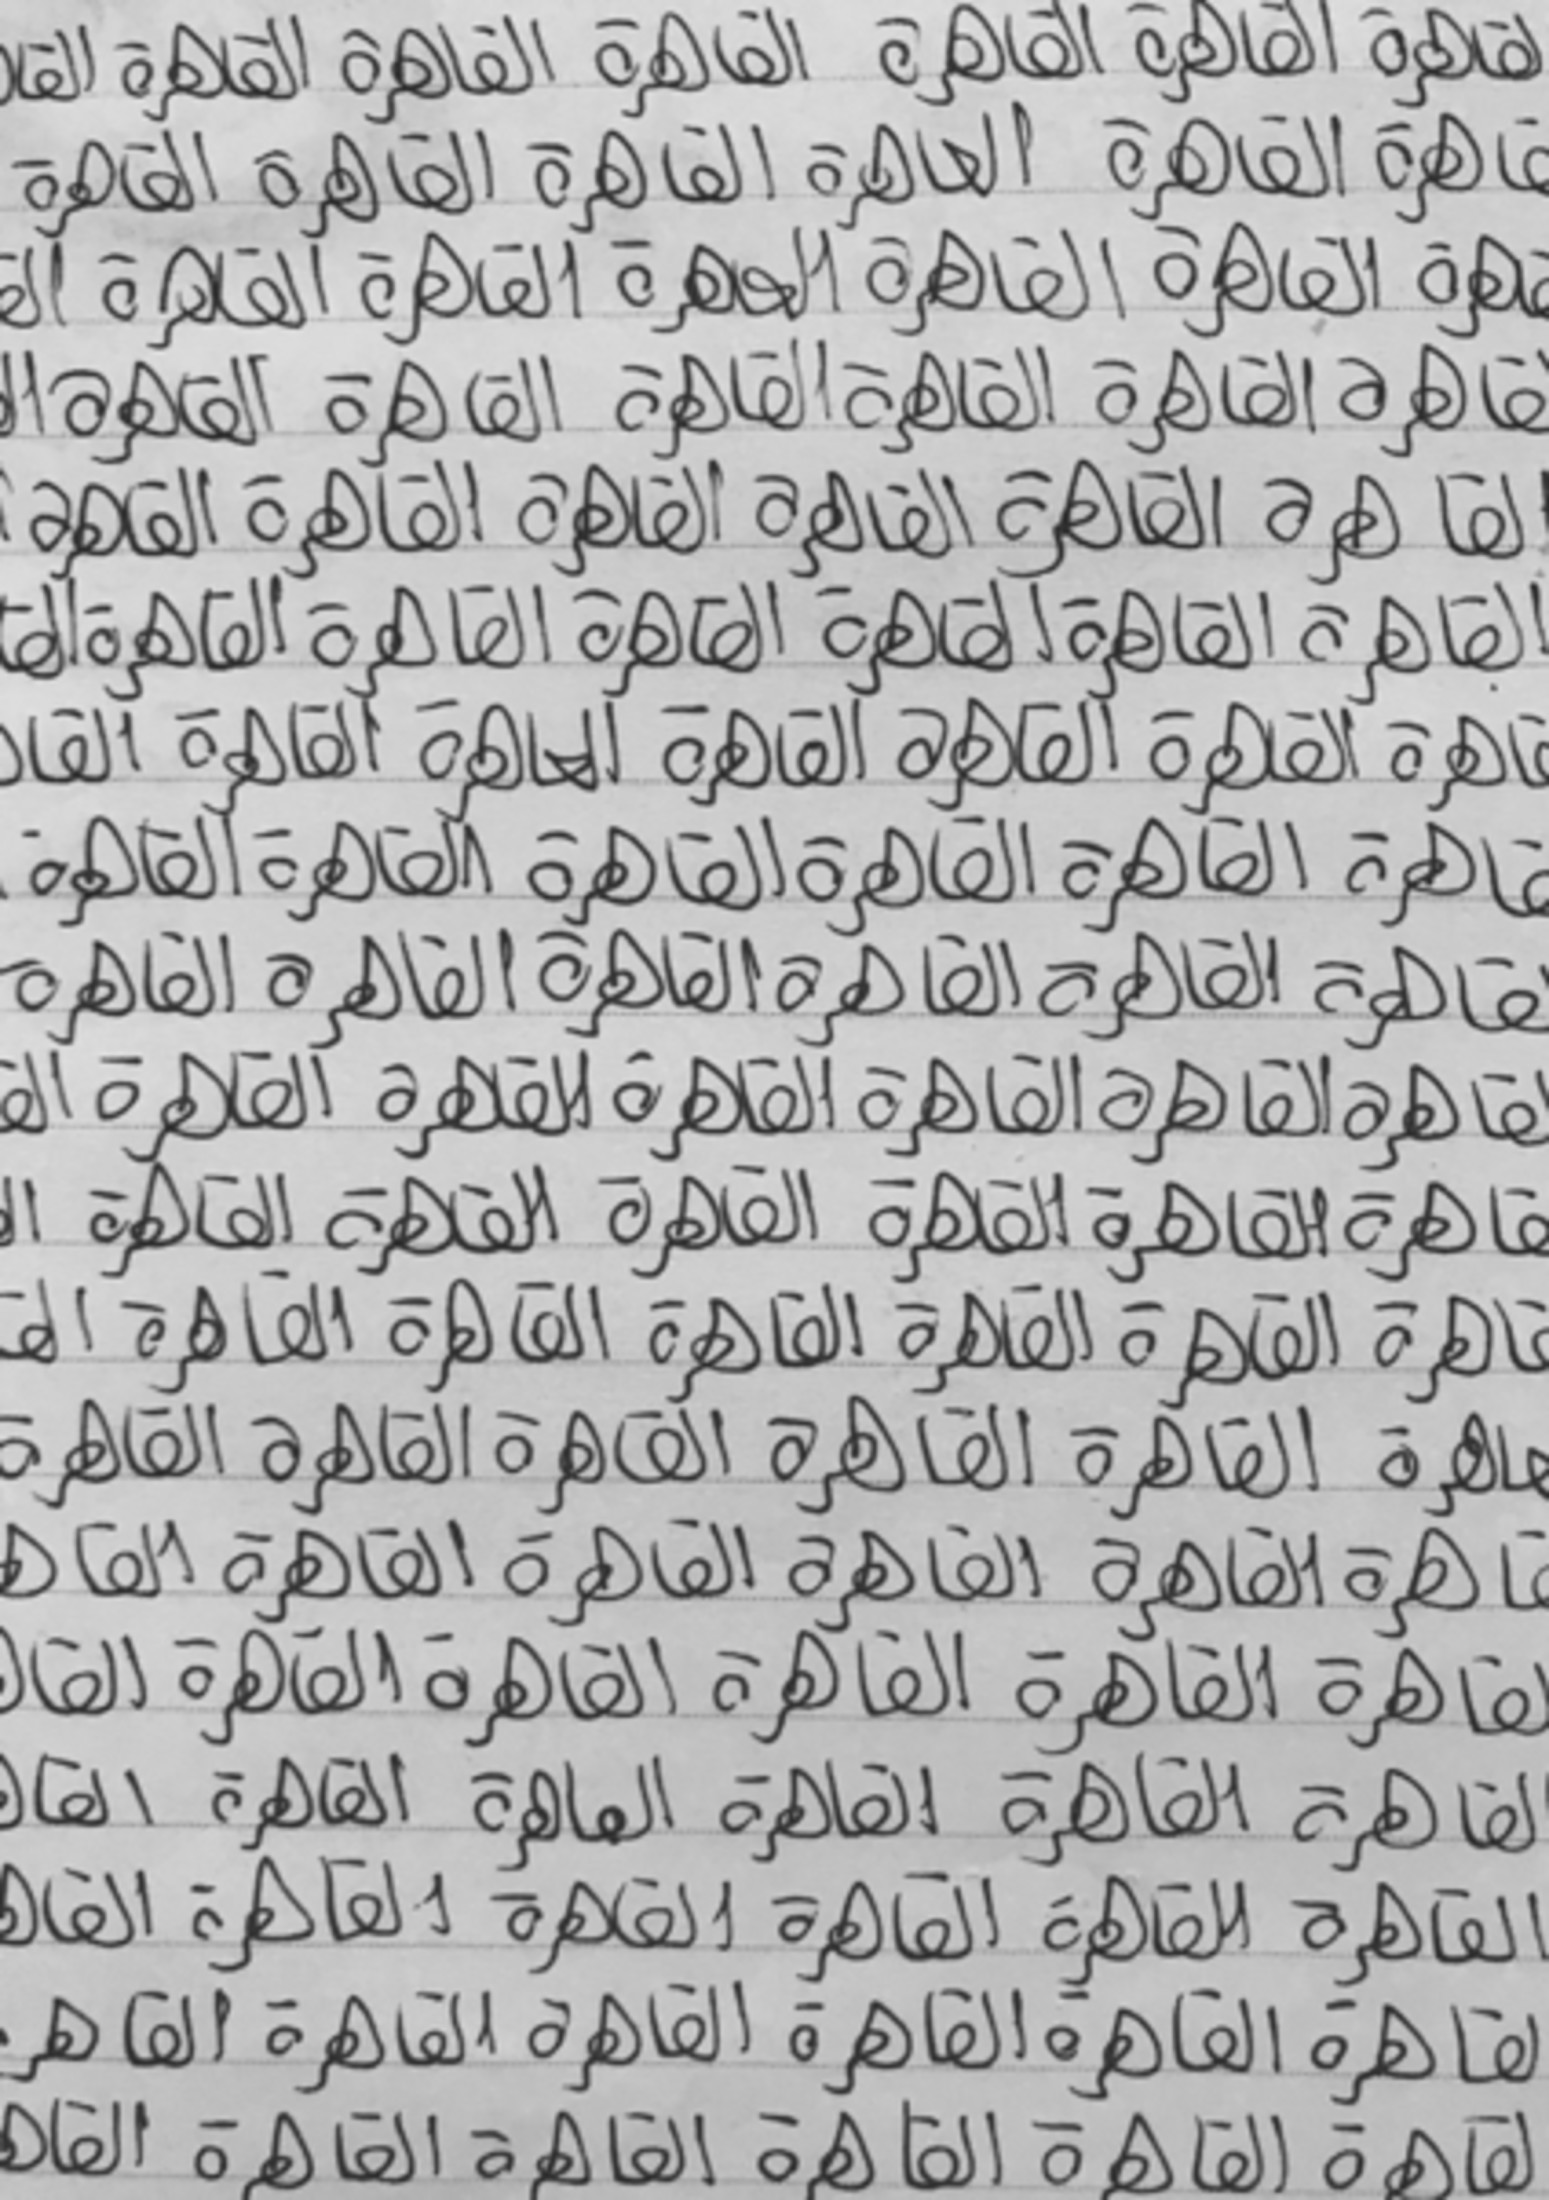 القاهرة القاهرة القاهرة القاهرة القاهرة القاهرة
القاهرة القاهرة القاهرة القاهرة القاهرة القاهرة
القاهرة القاهرة القاهرة القاهرة القاهرة
القاهرة القاهرة القاهرة القاهرة القاهرة القاهرة
القاهرة القاهرة القاهرة القاهرة القاهرة القاهرة
القاهرة القاهرة القاهرة القاهرة القاهرة القاهرة
القاهرة القاهرة القاهرة القاهرة القاهرة
القاهرة القاهرة القاهرة القاهرة القاهرة
القاهرة القاهرة القاهرة القاهرة القاهرة
القاهرة القاهرة القاهرة القاهرة القاهرة
القاهرة القاهرة القاهرة القاهرة القاهرة
القاهرة القاهرة القاهرة القاهرة القاهرة
القاهرة القاهرة القاهرة القاهرة القاهرة
القاهرة القاهرة القاهرة القاهرة
القاهرة القاهرة القاهرة القاهرة
القاهرة القاهرة القاهرة القاهرة القاهرة
القاهرة القاهرة القاهرة القاهرة القاهرة
لقاهرة القاهرة القاهرة القاهرة القاهرة القاهر
لقاهرة القاهرة القاهرة القاهرة القاهرة